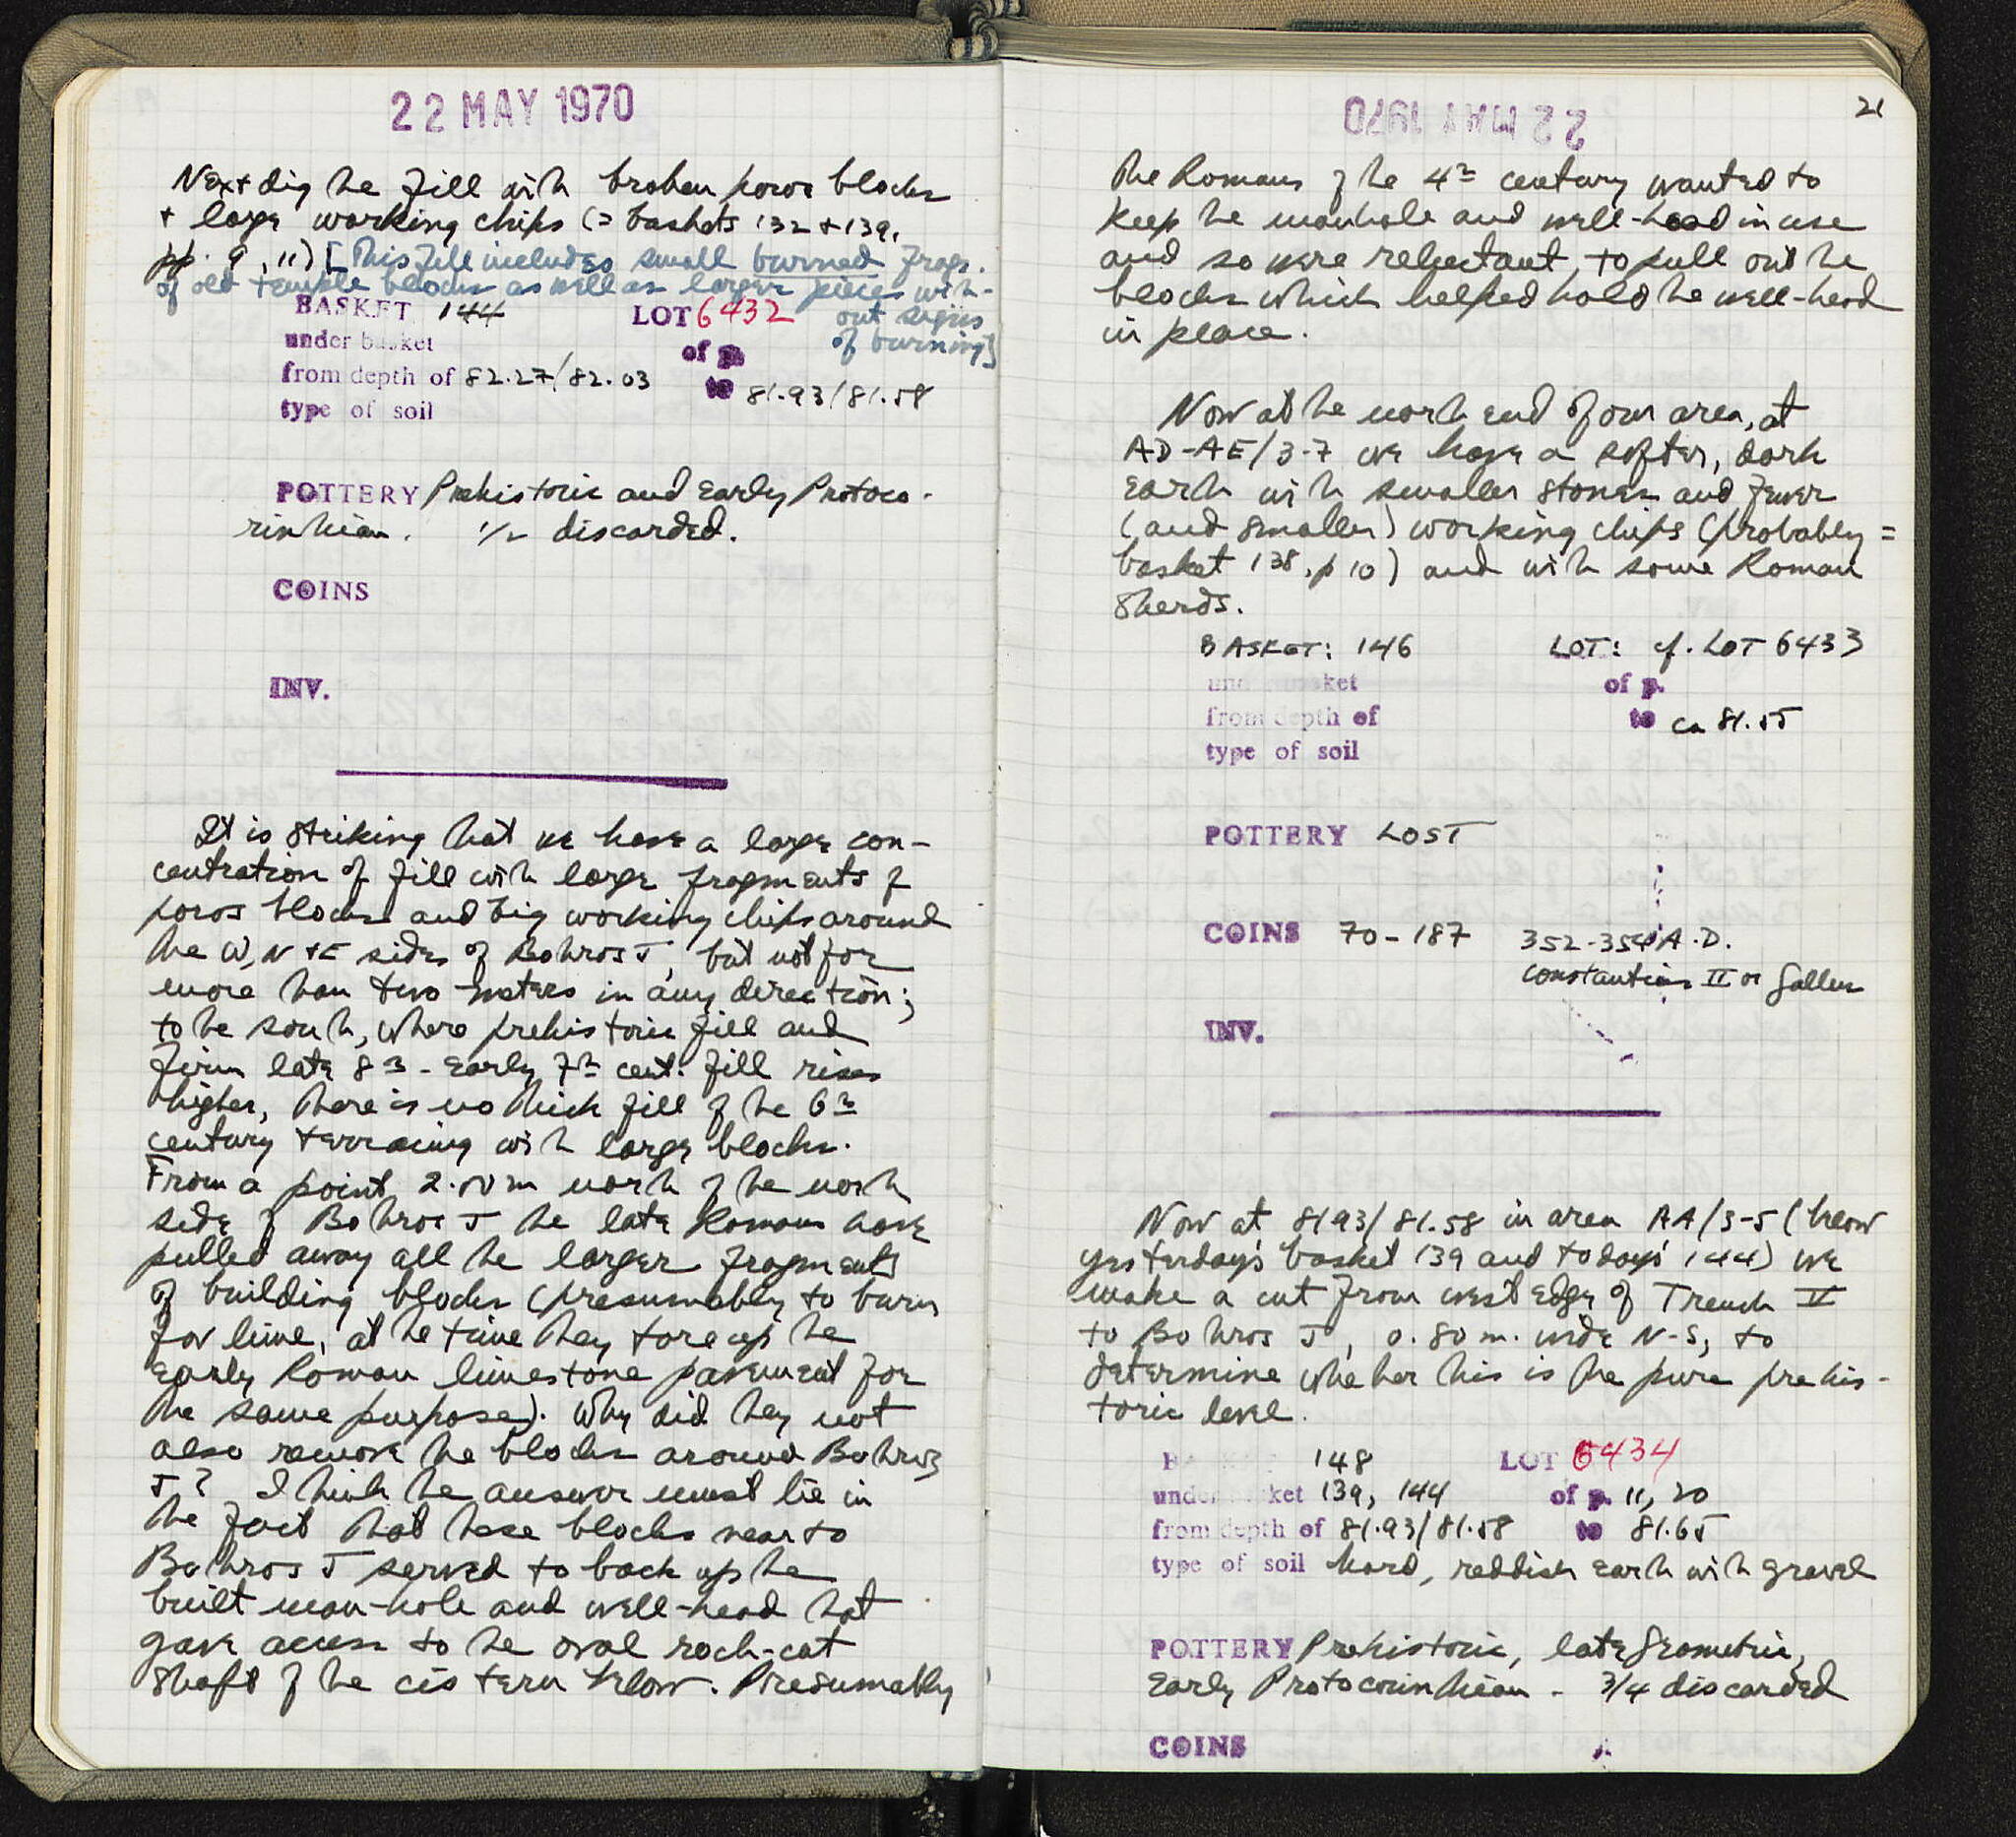 22 MAY 1970
Next dig the fill with broken poros blocks
+ large working chips (= baskets 132 + 139,
pp. 9, 11) [This fill includes small burned frags.
of old temple blocks as well as larger pieces with-
out signs
of burning]
BASKET 144 LOT 6432
under basket of p.
from depth of 82.27/82.03 to 81.93/81.58
type of soil
POTTERY Prehistoric and Early Protoco-
rinthian. 1/2 discarded.
COINS
INV.
It is striking that we have a large con-
centration of fill with large fragments of
poros blocks and big working chips around
the W, N + E sides of Bothros J, but not for
more than two meters in any direction;
to the south, where prehistoric fill and
firm late 8th - Early 7th cent. fill rises
higher, there is no thick fill of the 6th
century terracing with large blocks.
From a point 2.50 m north of the north
side of Bothros J the late Romans have
pulled away all the larger fragments
of building blocks (presumably to burn
for lime, at the time they tore up the
early Roman limestone pavement for
the same purpose). Why did they not
also remove the blocks around Bothros
J? I think the answer must lie in
the fact that these blocks near to
Bothros J served to back up the
built man-hole and well-head that
gave access to the oval rock-cut
shaft of the cistern below. Presumably
22 MAY 1970
21
the Romans of the 4th century wanted to
keep the manhole and well-head in use
and so were reluctant to pull out the
blocks which helped hold the well-head
in place.
Now at the north end of our area, at
AD-AE/3-7 we have a softer, dark
earth with smaller stones and fewer
(and smaller) working chips (probably =
basket 138, p 10) and with some Roman
sherds.
BASKET: 146 LOT: cf. LOT 6433
under basket of p.
from depth of to ca 81.55
type of soil
POTTERY LOST
COINS 70-187 352-354 A.D.
Constantius II or Gallus
INV.
Now at 81.93/81.58 in area AA/3-5 (below
yesterday's basket 139 and today's 144) we
make a cut from west edge of Trench V
to Bothros J, 0.80 m. wide N-S, to
determine whether this is the pure prehis-
toric level.
BASKET 148 LOT 6434
under basket 139, 144 of p. 11, 20
from depth of 81.93/81.58 to 81.65
type of soil hard, reddish earth with gravel
POTTERY Prehistoric, late Geometric,
Early Protocorinthian - 3/4 discarded
COINS